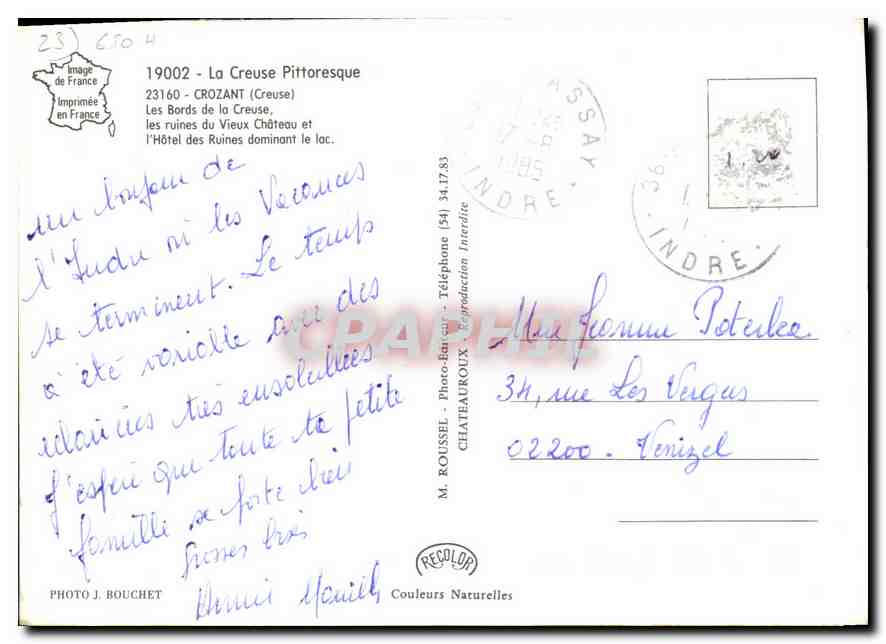 23) 650 H
Image
de France
Imprimée
en France
19002 - La Creuse Pittoresque
23160 - CROZANT (Creuse)
Les Bords de la Creuse,
les ruines du Vieux Château et
l'Hôtel des Ruines dominant le lac.
un bonjour de
l'Indre où les Vacances
se terminent. Le temps
a été variable avec des
éclaircies très ensoleillées
J'espère que toute ta petite
famille se porte bien
Grosses bises
Annie
PHOTO J. BOUCHET
M. ROUSSEL - Photo-Editeur - Téléphone (54) 34.17.83
CHATEAUROUX - Reproduction Interdite
RECOLOR
Couleurs Naturelles
ASSAY
1985
INDRE
36
INDRE
1.20
CPAPHIL
Mme Jeanine
34, rue Les Verges
02200 - Venizel